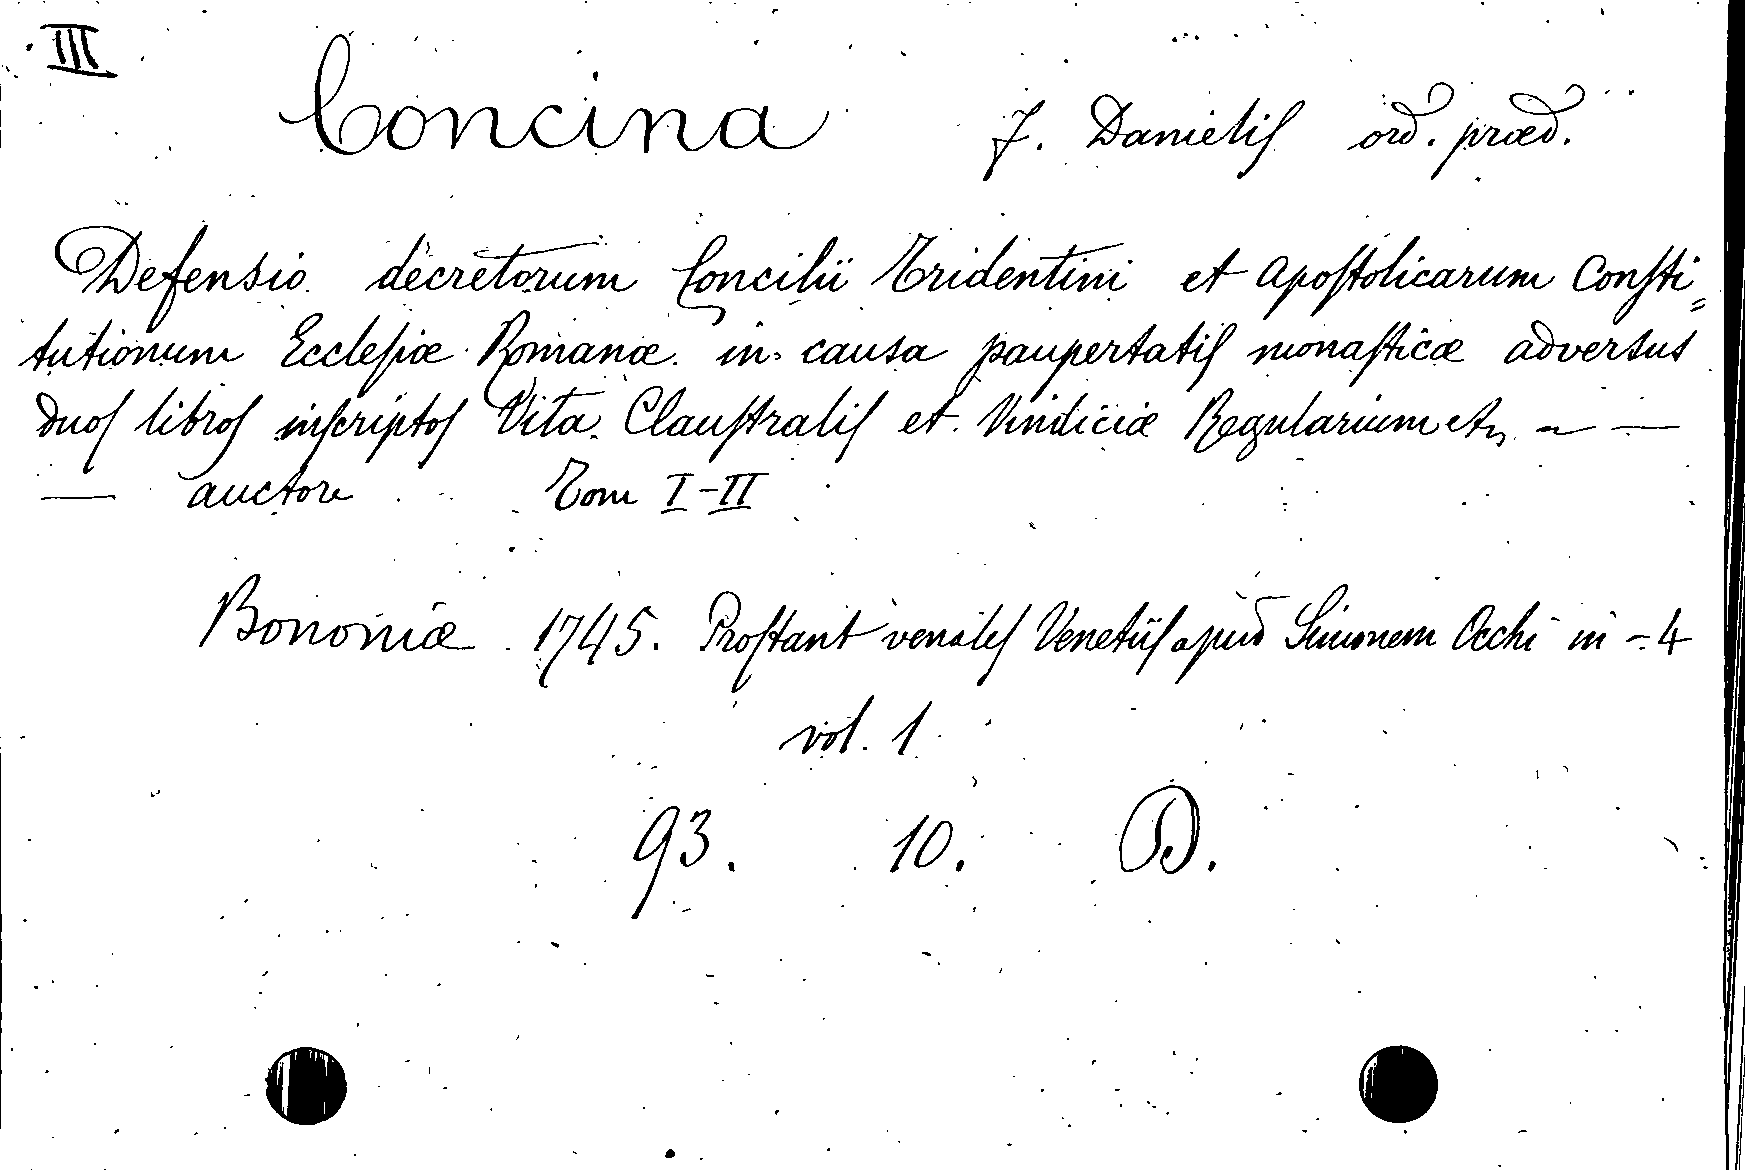 III
Concina F. Danielis ord. præd.
Defensio decretorum Concilii Tridentini et Apostolicarum Consti=
tutionum Ecclesiæ Romanæ in causa paupertatis monasticæ adversus
duos libros inscriptos Vita Claustralis et Vindiciæ Regularium etc. — —
— auctore Tom I-II
Bononiæ 1745. Prostant venales Venetiis apud Simonem Occhi in-4
vol. 1
93. 10. D.